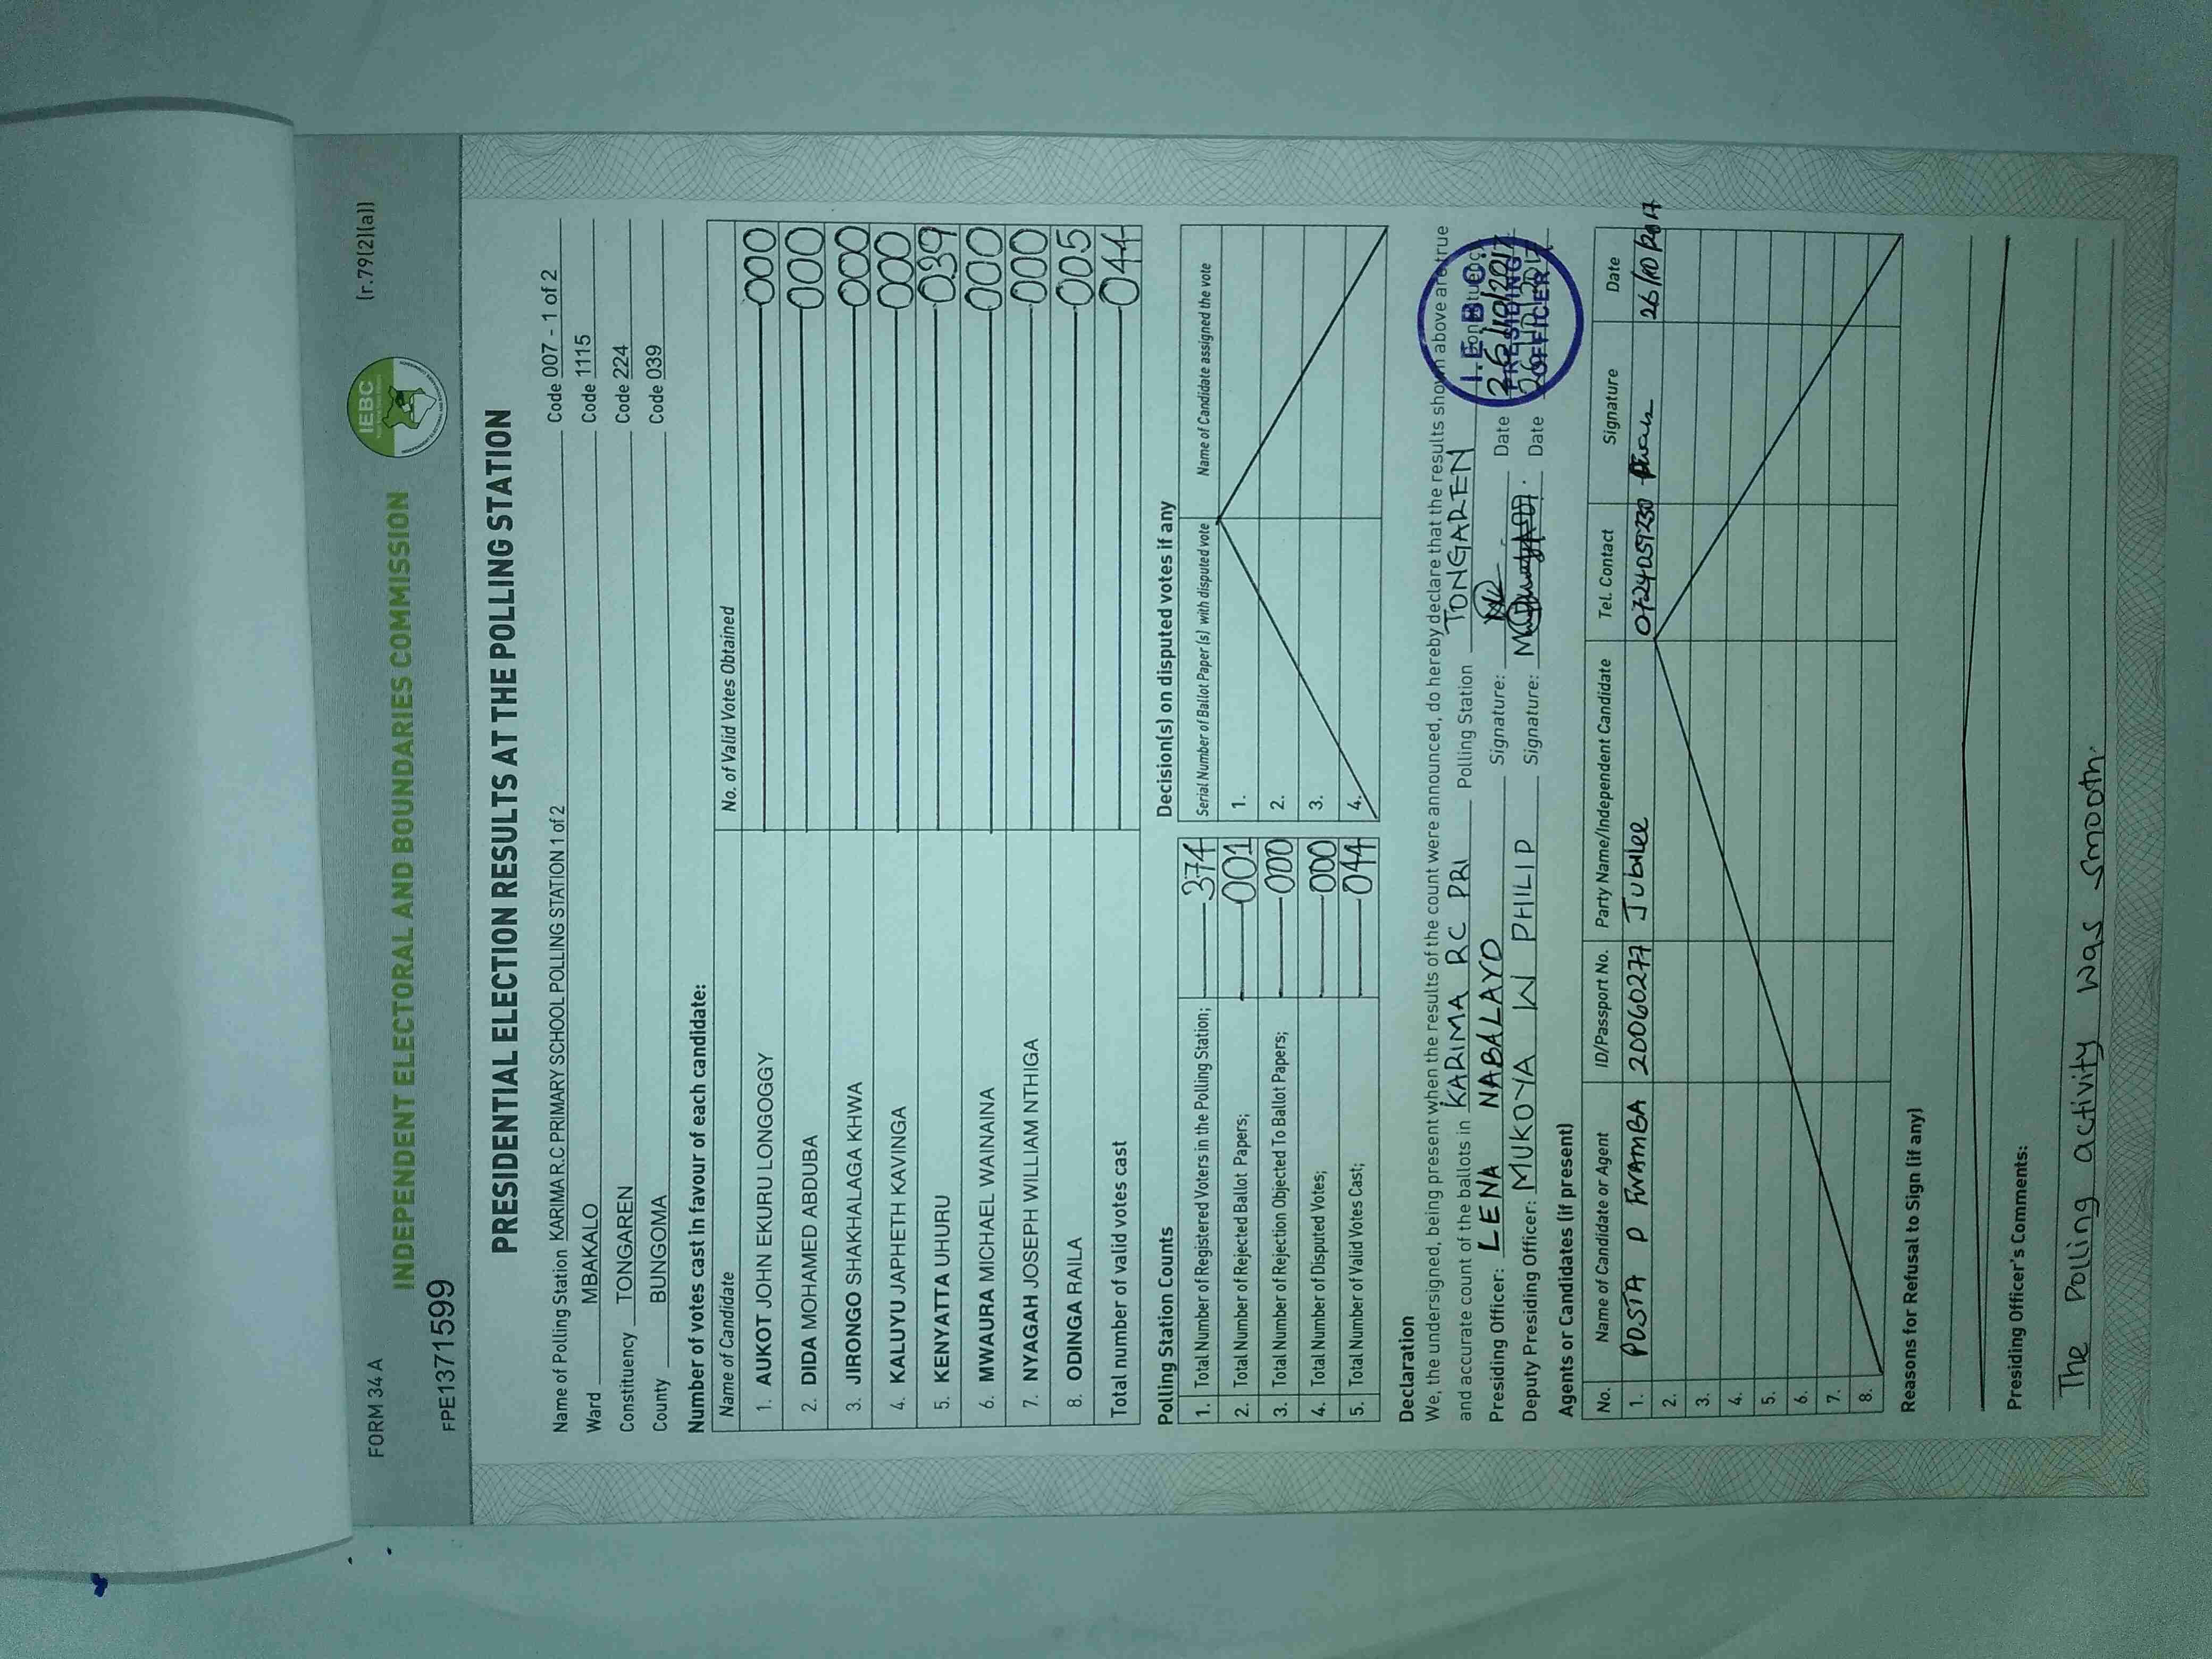 FORM 34 A
(r.79(2)(a))
IEBC
INDEPENDENT ELECTORAL AND BOUNDARIES COMMISSION
FPE1371599
PRESIDENTIAL ELECTION RESULTS AT THE POLLING STATION
Name of Polling Station KARIMA R.C PRIMARY SCHOOL POLLING STATION 1 of 2 Code 007 - 1 of 2
Ward MBAKALO Code 1115
Constituency TONGAREN Code 224
County BUNGOMA Code 039
Number of votes cast in favour of each candidate:
Name of Candidate No. of Valid Votes Obtained
1. AUKOT JOHN EKURU LONGOGGY 000
2. DIDA MOHAMED ABDUBA 000
3. JIRONGO SHAKHALAGA KHWA 000
4. KALUYU JAPHETH KAVINGA 000
5. KENYATTA UHURU 039
6. MWAURA MICHAEL WAINAINA 000
7. NYAGAH JOSEPH WILLIAM NTHIGA 000
8. ODINGA RAILA 005
Total number of valid votes cast 044
Polling Station Counts
1. Total Number of Registered Voters in the Polling Station; 374
2. Total Number of Rejected Ballot Papers; 001
3. Total Number of Rejection Objected To Ballot Papers; 000
4. Total Number of Disputed Votes; 000
5. Total Number of Valid Votes Cast; 044
Decision(s) on disputed votes if any
Serial Number of Ballot Paper (s) with disputed vote Name of Candidate assigned the vote
1.
2.
3.
4.
Declaration
We, the undersigned, being present when the results of the count were announced, do hereby declare that the results shown above are true
and accurate count of the ballots in KARIMA RC PRI Polling Station TONGAREN Constituency
Presiding Officer: LENA NABALAYO Signature: Date 26/10/2017
Deputy Presiding Officer: MUKOYA W PHILIP Signature: Date
I.E.B.C.
PRESIDING
OFFICER
Agents or Candidates (if present)
No. Name of Candidate or Agent ID/Passport No. Party Name/Independent Candidate Tel. Contact Signature Date
1. POSTA P FWAMBA 20060277 Jubilee 0724051230 26/10/2017
2.
3.
4.
5.
6.
7.
8.
Reasons for Refusal to Sign (if any)
Presiding Officer's Comments:
The Polling activity was smooth.